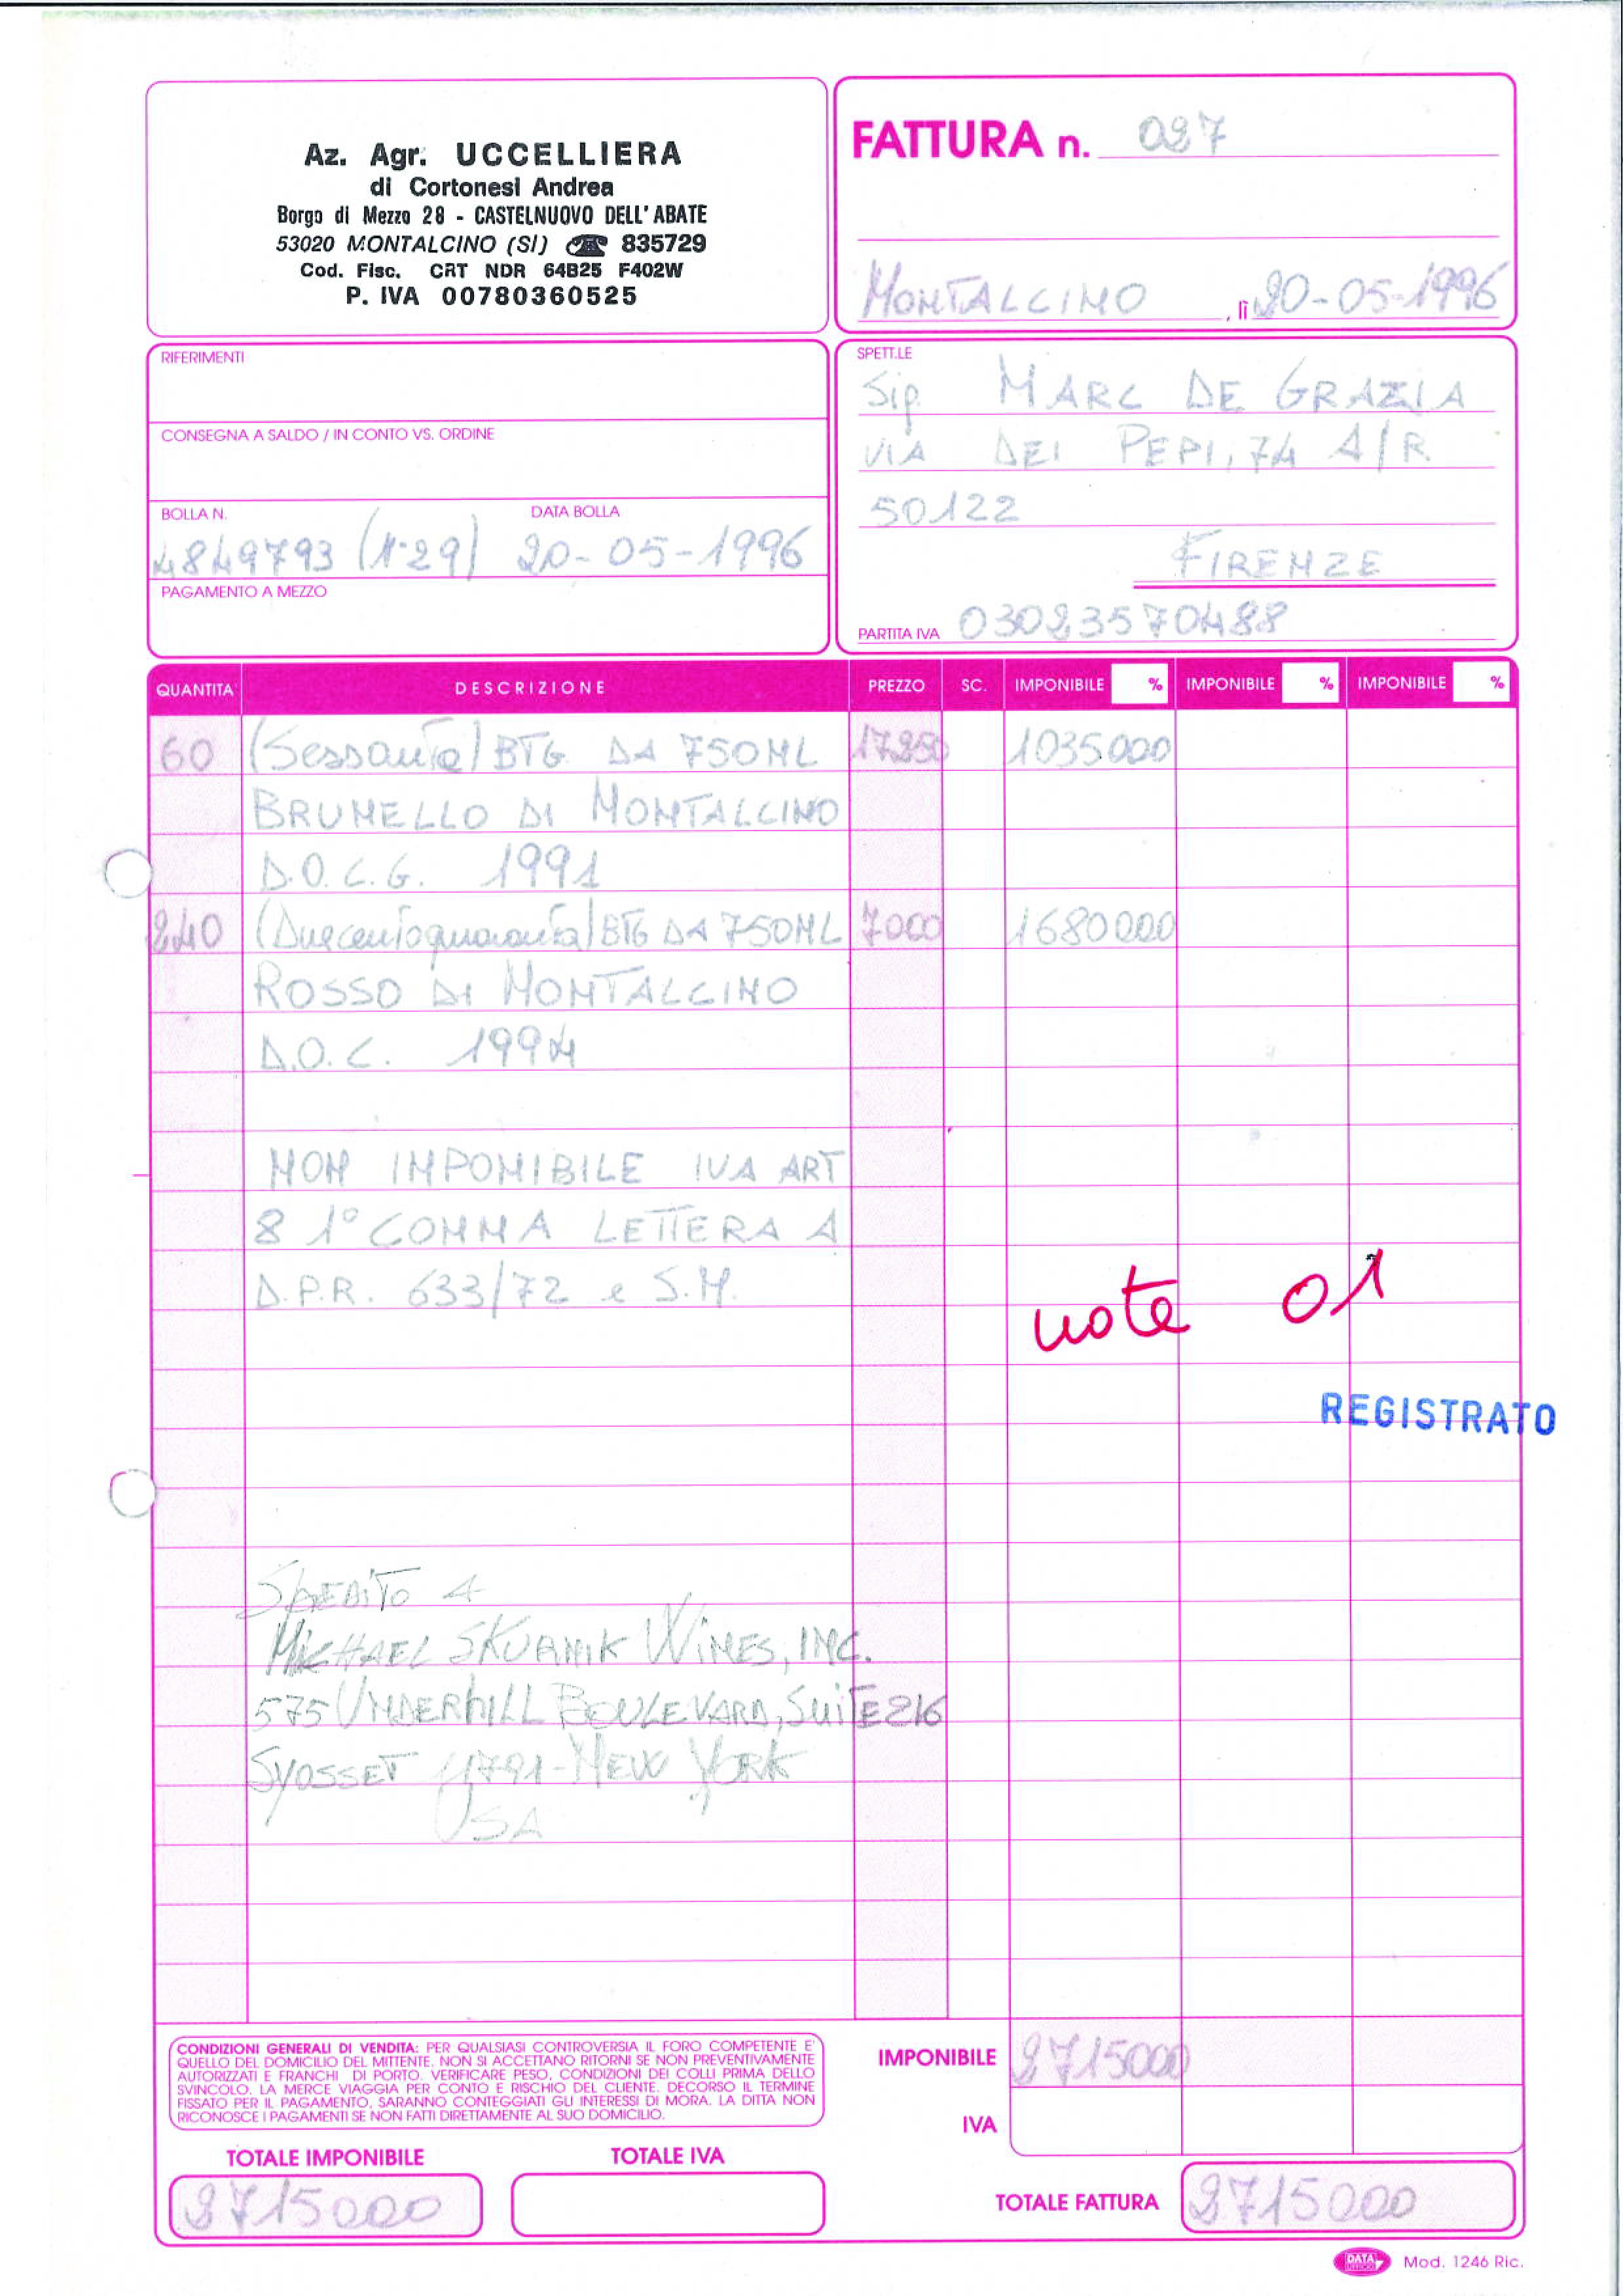 Az. Agr. UCCELLIERA
di Cortonesi Andrea
Borgo di Mezzo 28 - CASTELNUOVO DELL'ABATE
53020 MONTALCINO (SI) ☎ 835729
Cod. Fisc. CRT NDR 64B25 F402W
P. IVA 00780360525
FATTURA n. 027
MONTALCINO, lì 20-05-1996
RIFERIMENTI
CONSEGNA A SALDO / IN CONTO VS. ORDINE
BOLLA N. DATA BOLLA
4849793 (N°29) 20-05-1996
PAGAMENTO A MEZZO
SPETT.LE
Sig. MARC DE GRAZIA
VIA DEI PEPI, 74 A/R
50122
FIRENZE
PARTITA IVA 03023570488
QUANTITA' DESCRIZIONE PREZZO SC. IMPONIBILE % IMPONIBILE % IMPONIBILE %
60 (Sessanta) BTG. DA 750ML 17250 1035000
BRUNELLO DI MONTALCINO
D.O.C.G. 1991
240 (Duecentoquaranta) BTG DA 750ML 7000 1680000
ROSSO DI MONTALCINO
D.O.C. 1994
NON IMPONIBILE IVA ART
8 1° COMMA LETTERA A
D.P.R. 633/72 e S.M.
note 01
REGISTRATO
SPEDITO A
MICHAEL SKURNIK WINES, INC.
575 UNDERHILL BOULEVARD, SUITE 216
SYOSSET 11791-NEW YORK
USA
CONDIZIONI GENERALI DI VENDITA: PER QUALSIASI CONTROVERSIA IL FORO COMPETENTE E'
QUELLO DEL DOMICILIO DEL MITTENTE. NON SI ACCETTANO RITORNI SE NON PREVENTIVAMENTE
AUTORIZZATI E FRANCHI DI PORTO. VERIFICARE PESO, CONDIZIONI DEI COLLI PRIMA DELLO
SVINCOLO. LA MERCE VIAGGIA PER CONTO E RISCHIO DEL CLIENTE. DECORSO IL TERMINE
FISSATO PER IL PAGAMENTO, SARANNO CONTEGGIATI GLI INTERESSI DI MORA. LA DITTA NON
RICONOSCE I PAGAMENTI SE NON FATTI DIRETTAMENTE AL SUO DOMICILIO.
IMPONIBILE 2715000
IVA
TOTALE IMPONIBILE TOTALE IVA
2715000
TOTALE FATTURA 2715000
DATA UFFICIO Mod. 1246 Ric.